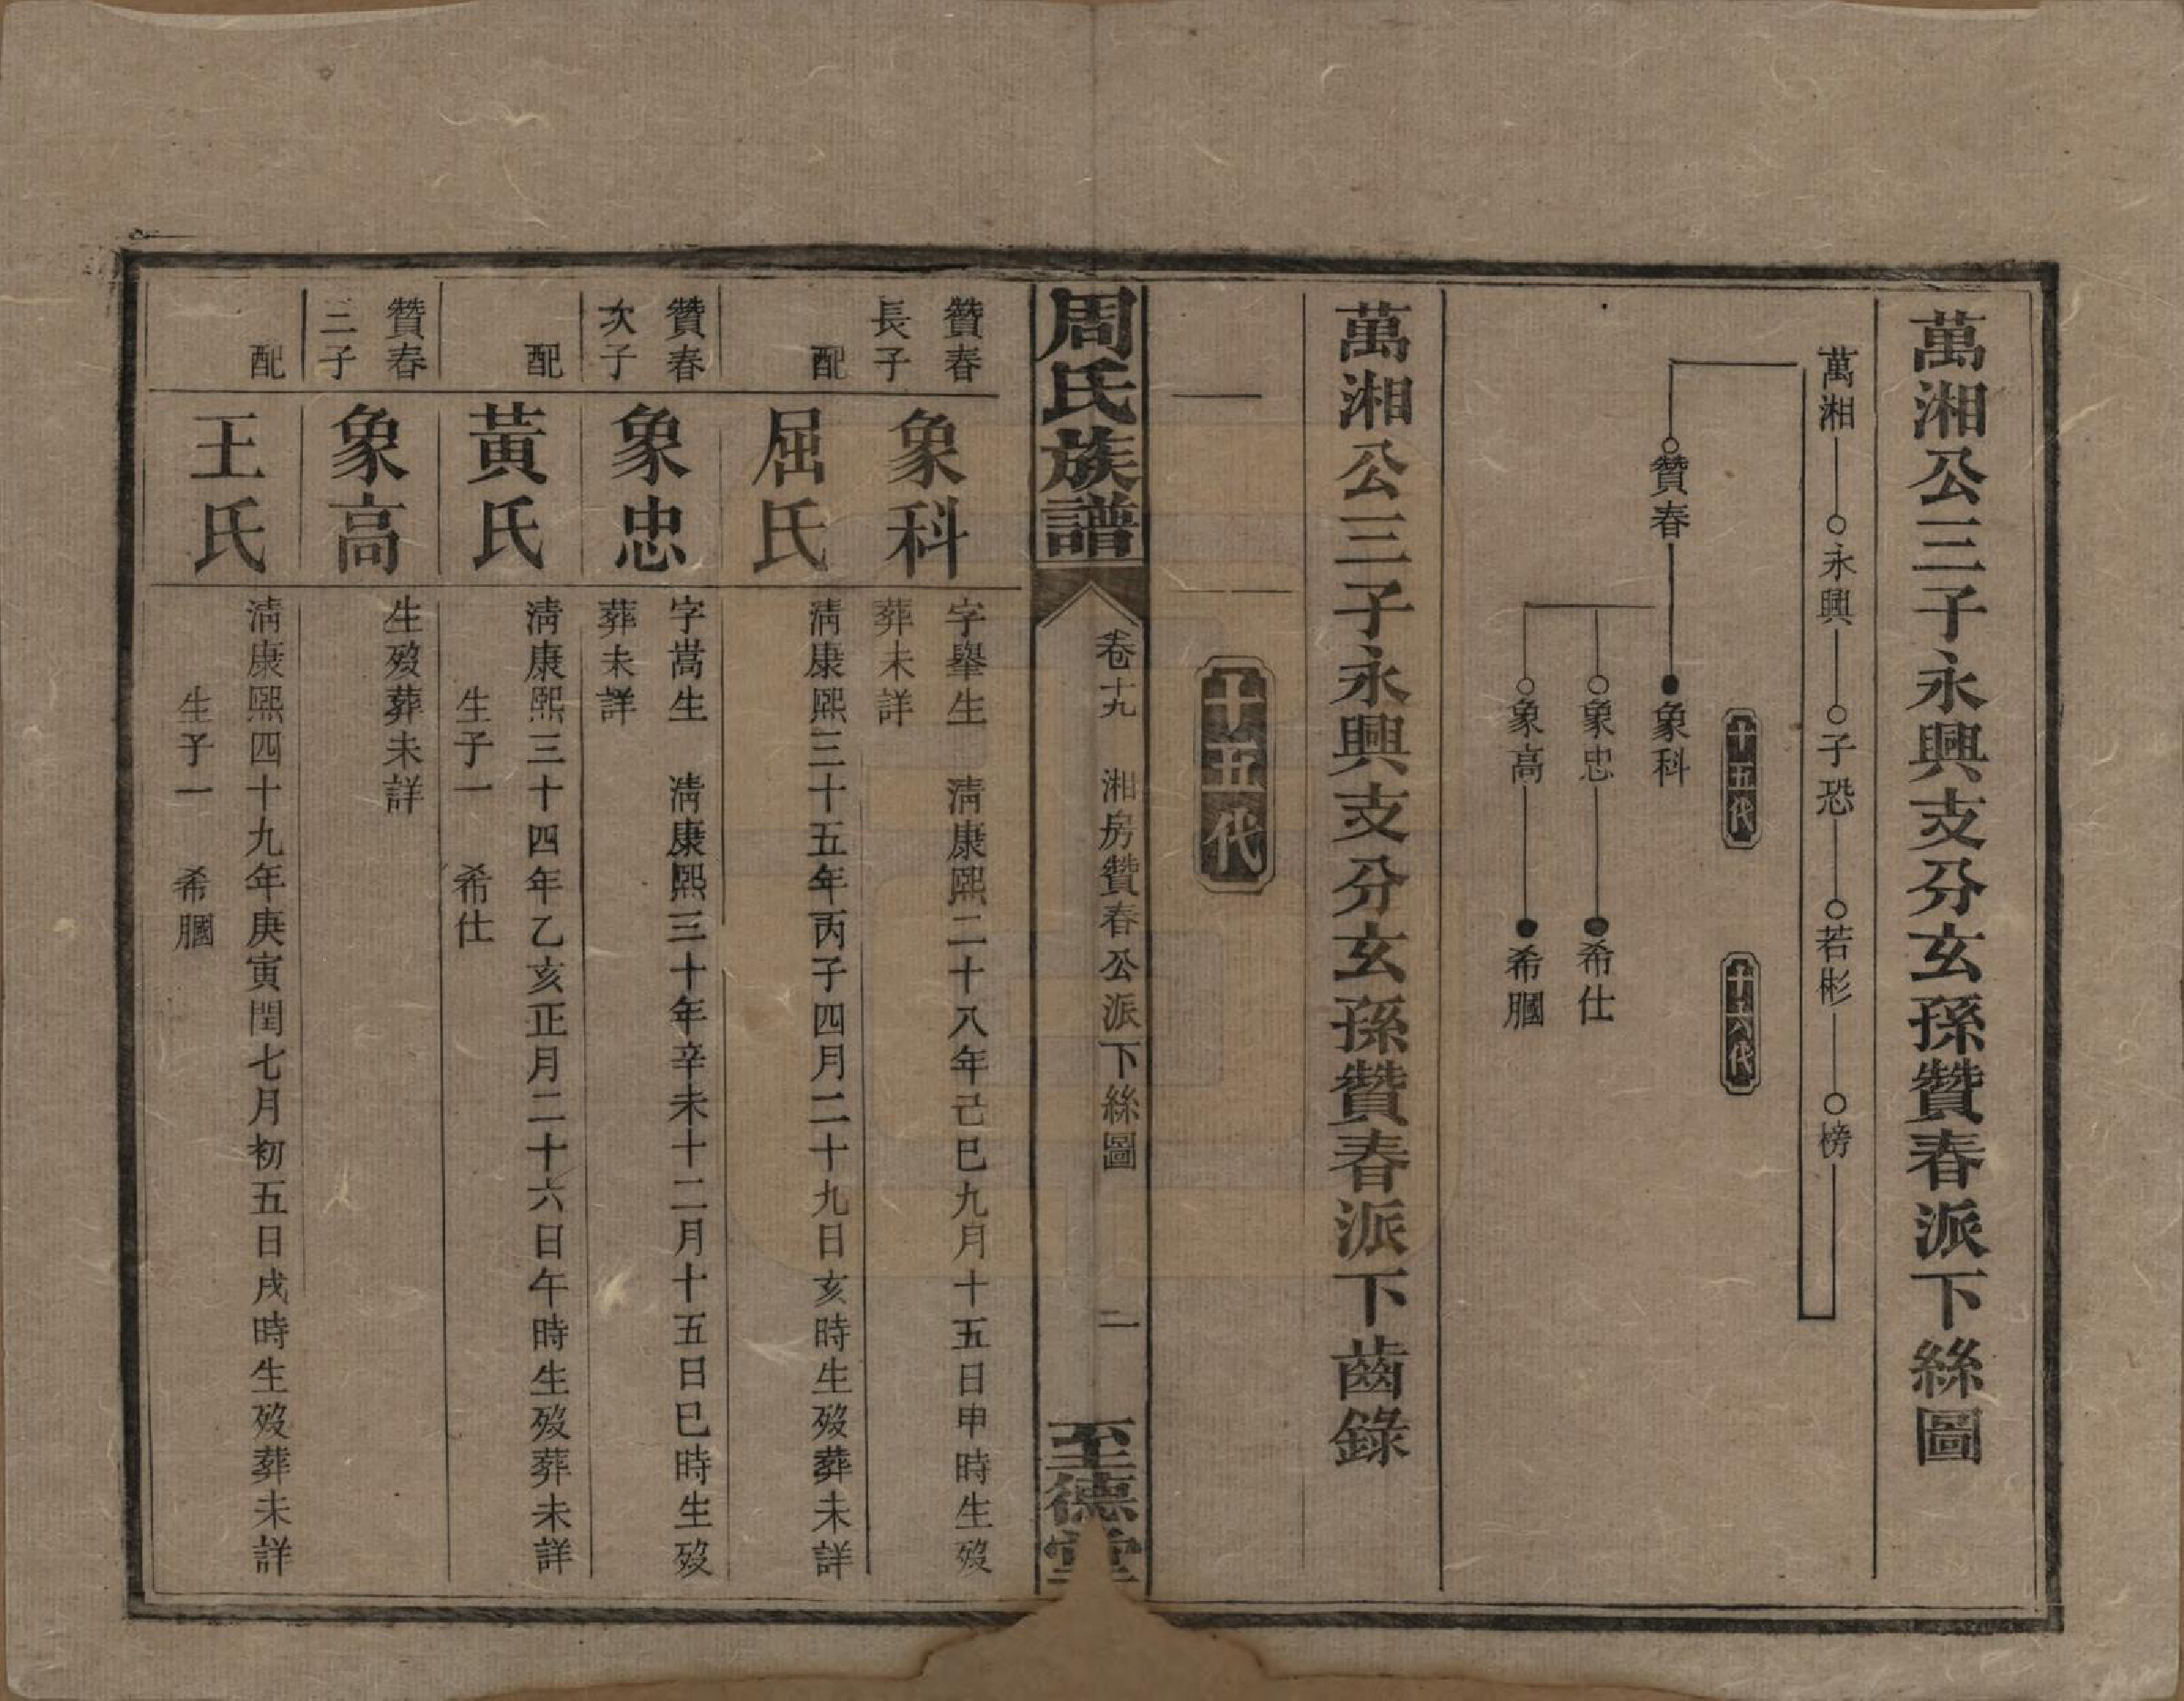 萬湘公三子永興支分玄孫贊春派下絲圖
萬湘 永興 子恐 若彬 榜
十五代 十六代
贊春 象科
象忠 希仕
象高 希膕
萬湘公三子永興支分玄孫贊春派下齒錄
十五代
周氏族譜 卷十九 湘房贊春公派下絲圖 二 至德堂
贊春長子 象科 字舉生 淸康熙二十八年己巳九月十五日申時生歿葬未詳
配 屈氏 淸康熙三十五年丙子四月二十九日亥時生歿葬未詳
贊春次子 象忠 字嵩生 淸康熙三十年辛未十二月十五日巳時生歿葬未詳
配 黃氏 淸康熙三十四年乙亥正月二十六日午時生歿葬未詳
生子一 希仕
贊春三子 象高 生歿葬未詳
配 王氏 淸康熙四十九年庚寅閏七月初五日戌時生歿葬未詳
生子一 希膕